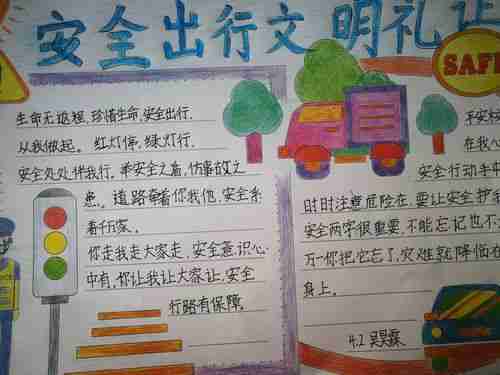 安全出行文明礼让
SAFE
生命无返程,珍惜生命,安全出行.
从我做起。红灯停,绿灯行.
安全处处伴我行.举安全之盾,防事故之
患。道路牵着你我他,安全系
着千万家.
你走我走大家走,安全意识心
中有,你让我让大家让,安全
行路有保障。
平安校
在我心
安全行动半
时时注意危险在,要让安全护我
安全两字很重要,不能忘记也不
万一你把它忘了,灾难就降临在
身上。
4.2 吴昊霖